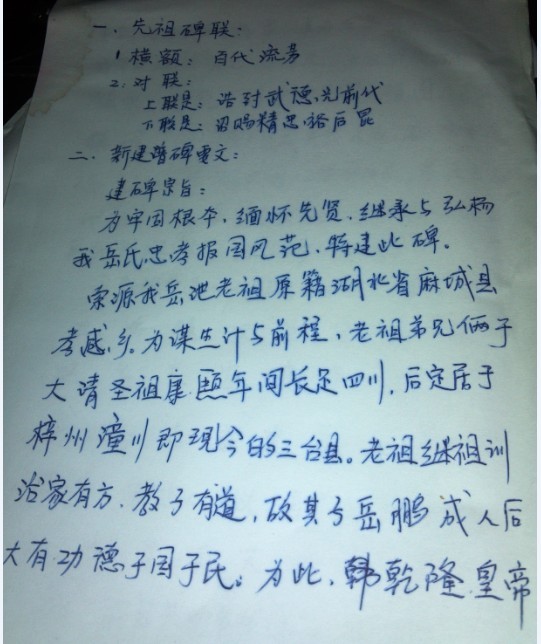 一、先祖碑联:
1横额: 百代流芳
2、对联:
上联是: 诰封武德光前代
下联是: 诏赐精忠裕后昆
二、新建谱碑电文:
建碑宗旨:
为牢固根本、缅怀先贤、继承与弘杨
我岳氏忠孝报国风范、特建此碑。
宗源我岳池老祖原籍湖北省麻城县
孝感乡。为谋生计与前程,老祖弟兄俩于
大请圣祖康熙年间长足四川,后定居于
梓州潼川即现今的三台县。老祖继祖训
治家有方、教子有道,故其子岳鹏成人后
大有功德于国于民。为此,韩乾隆皇帝